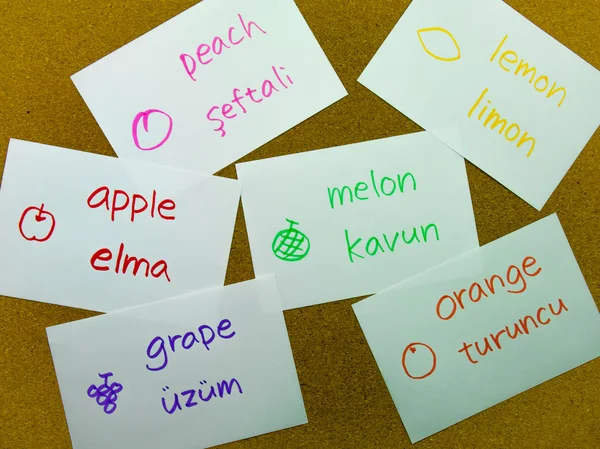 peach
şeftali
lemon
limon
apple
elma
melon
kavun
orange
turuncu
grape
üzüm